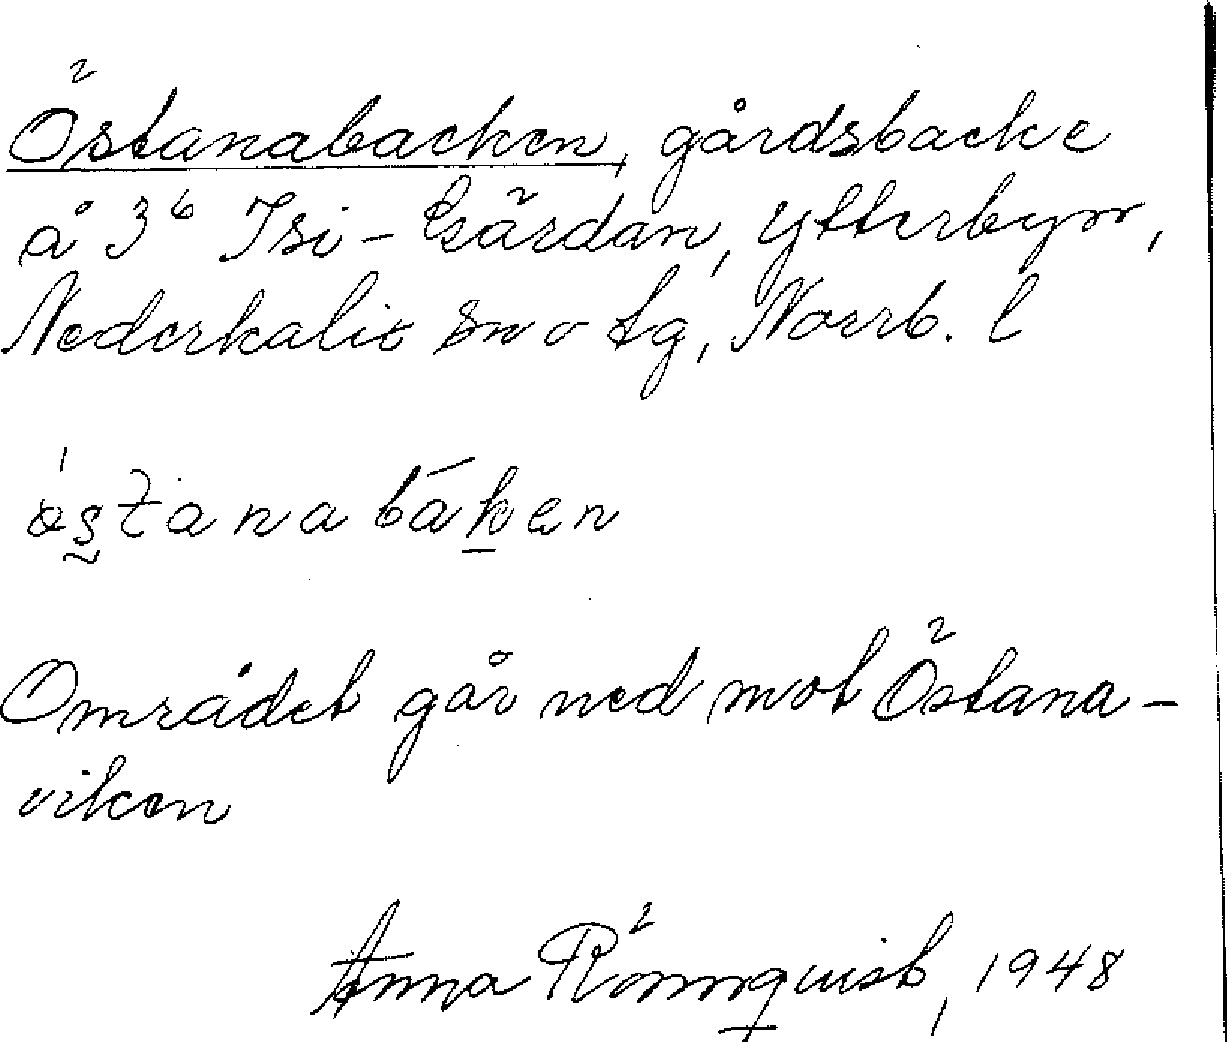 Östanabacken, gårdsbacke
å 3⁶ Isi-Gärdan, Ytterbyn,
Nederkalix sn o tg, Norrb. l
östanabáken
Området går ned mot Östana-
viken
Anna Rönnquist, 1948